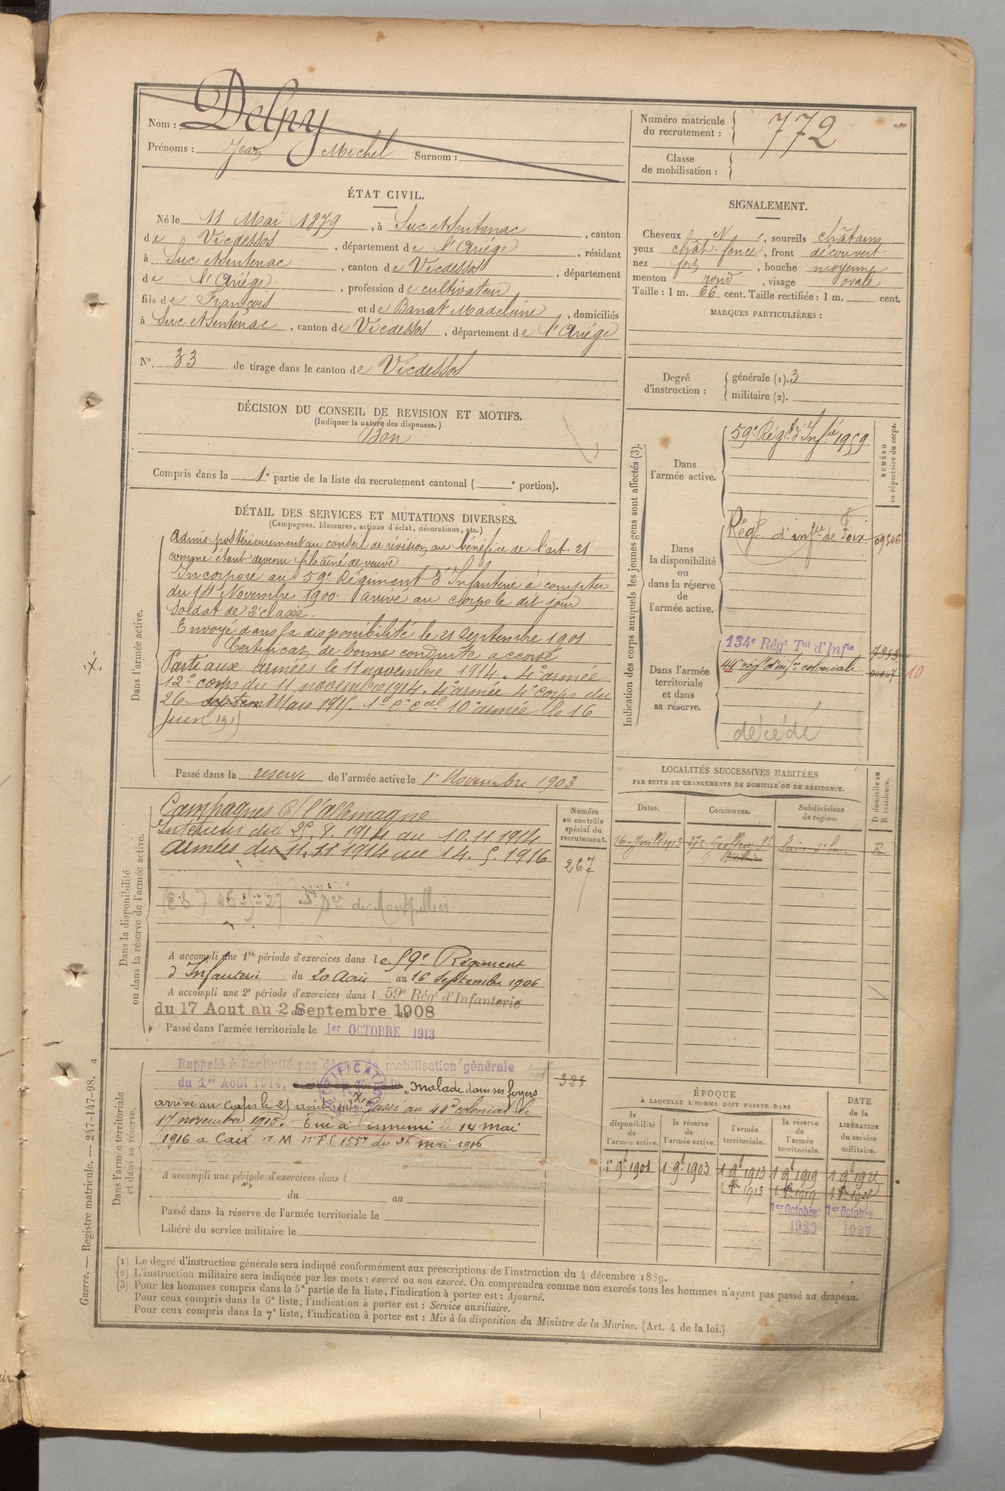 Nom : Delpy
Prénoms : Jean Michel Surnom :
Numéro matricule du recrutement : 772
Classe de mobilisation :
ÉTAT CIVIL.
Né le 11 Mai 1879, à Suc et Sentenac, canton
de Vicdessos, département de l'Ariège, résidant
à Suc et Sentenac, canton de Vicdessos, département
de l'Ariège, profession de cultivateur,
fils de François et de Banat Madeleine, domiciliés
à Suc et Sentenac, canton de Vicdessos, département de l'Ariège
N° 33 de tirage dans le canton de Vicdessos
SIGNALEMENT.
Cheveux N, sourcils châtains
yeux chât. foncé, front découvert
nez fort, bouche moyenne
menton rond, visage ovale
Taille : 1 m. 66 cent. Taille rectifiée : 1 m. cent.
MARQUES PARTICULIÈRES :
Degré d'instruction : générale (1). 3
militaire (2).
DÉCISION DU CONSEIL DE REVISION ET MOTIFS.
(Indiquer la nature des dispenses.)
Bon
Compris dans la 1e partie de la liste du recrutement cantonal ( e portion).
DÉTAIL DES SERVICES ET MUTATIONS DIVERSES.
(Campagnes, blessures, actions d'éclat, décorations, etc.)
Dans l'armée active.
Admis postérieurement au conseil de révision au bénéfice de l'art. 21
comme étant devenu fils aîné de veuve
Incorporé au 59e Régiment d'Infanterie à compter
du 14 Novembre 1900 arrivé au corps le dit jour
Soldat de 2e classe.
Envoyé dans la disponibilité le 21 Septembre 1901
Certificat de bonne conduite accordé
Parti aux armées le 11 novembre 1914. 4e armée
12e corps du 11 novembre 1914. 4e armée 4e corps du
26 Mars 1915. 10e armée le 16
juin 1915
Passé dans la réserve de l'armée active le 1er Novembre 1903
Indication des corps auxquels les jeunes gens sont affectés (3).
NUMÉRO au répertoire du corps.
Dans l'armée active.
59e Régt d'Infie 1959
Dans la disponibilité ou dans la réserve de l'armée active.
Régt d'infie de Foix
Dans l'armée territoriale et dans sa réserve.
134e Régt Tal d'Infie
44e régt d'infie coloniale
10
décédé
LOCALITÉS SUCCESSIVES HABITÉES
PAR SUITE DE CHANGEMENTS DE DOMICILE OU DE RÉSIDENCE.
Dates. Communes. Subdivisions de région. D domicile ou R résidence.
R
Dans la disponibilité ou dans la réserve de l'armée active.
Numéro au contrôle spécial du recrutement.
267
Campagnes C/ l'allemagne
Intérieur du 25. 8. 1914 au 10.11.1914
Armées du 11.11.1914 au 14. 5. 1916
de Montpellier
A accompli une 1re période d'exercices dans le 59e Régiment
d'Infanterie du 20 Août au 16 Septembre 1906
A accompli une 2e période d'exercices dans l 59e Régt d'Infanterie
du 17 Aout au 2 Septembre 1908
Passé dans l'armée territoriale le 1er OCTOBRE 1913
Dans l'armée territoriale et dans sa réserve.
Rappelé à l'activité par décret de mobilisation générale
du 1er Août 1914. malade dans ses foyers
arrivé au corps le 25 août 1914. Passé au 44e colonial le
17 novembre 1915. Tué à l'ennemi le 14 mai
1916 à Caix A M n° FS 155 du 25 mai 1916
A accompli une période d'exercices dans l
du au
Passé dans la réserve de l'armée territoriale le
Libéré du service militaire le
ÉPOQUE
À LAQUELLE L'HOMME DOIT PASSER DANS
la disponibilité de l'armée active.
la réserve de l'armée active.
l'armée territoriale.
la réserve de l'armée territoriale.
DATE de la LIBÉRATION du service militaire.
1er 9bre 1901 1 9bre 1903 1 9bre 1913 1 9bre 1919
1er Octobre 1er Octobre
1927
Guerre. — Registre matricule. — 247-147-98.
(1) Le degré d'instruction générale sera indiqué conformément aux prescriptions de l'instruction du 4 décembre 1889.
(2) L'instruction militaire sera indiquée par les mots : exercé ou non exercé. On comprendra comme non exercés tous les hommes n'ayant pas passé au drapeau.
(3) Pour les hommes compris dans la 5e partie de la liste, l'indication à porter est : Ajourné.
Pour ceux compris dans la 6e liste, l'indication à porter est : Service auxiliaire.
Pour ceux compris dans la 7e liste, l'indication à porter est : Mis à la disposition du Ministre de la Marine. (Art. 4 de la loi.)